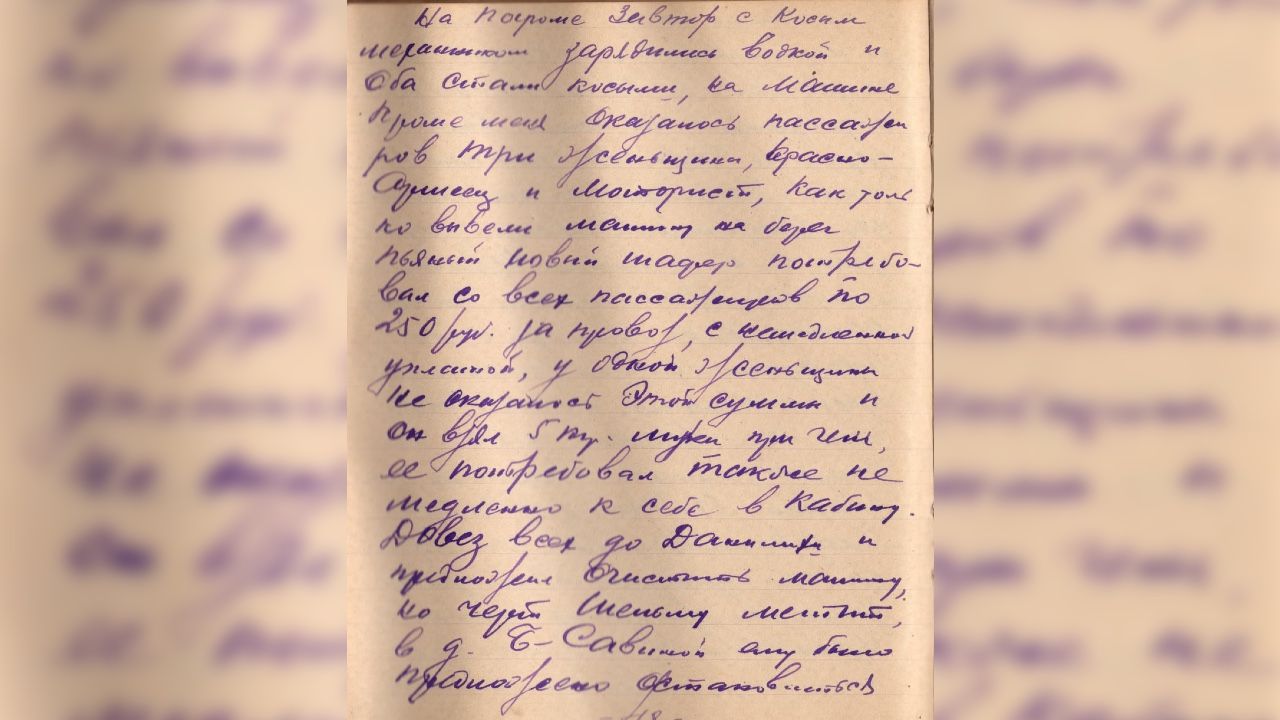 На пароме Завтор с Косым
механиком зарядились водкой и
Оба стали косыми, на Машине
Кроме меня Оказалось пассажи
ров три женьщины, Красно-
Армеец и Моторист, Как толь
ко вывели машину на берег
пьяный новый шафер потребо-
вал со всех пассажиров по
250 руб. за провоз, с немедленной
уплатой, у одной женьщины
Не оказалось Этой суммы и
Он взял 5 кгр. муки при чем,
ее потребовал также не
медленно к себе в Кабину.
Довез всех до Данилихи и
предложил Очистить машину,
но черт Шельму метит,
в д. Б-Савиной ему было
Предложено Остановиться